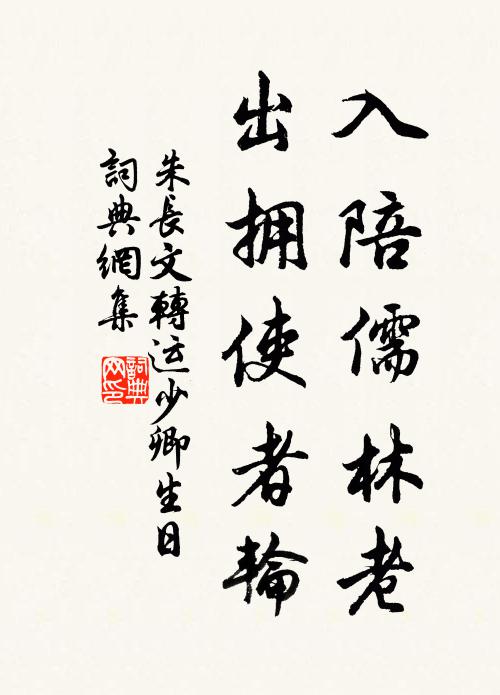 入陪儒林老
出拥使者輪
朱長文轉运少卿生日
詞典網集
詞典网印